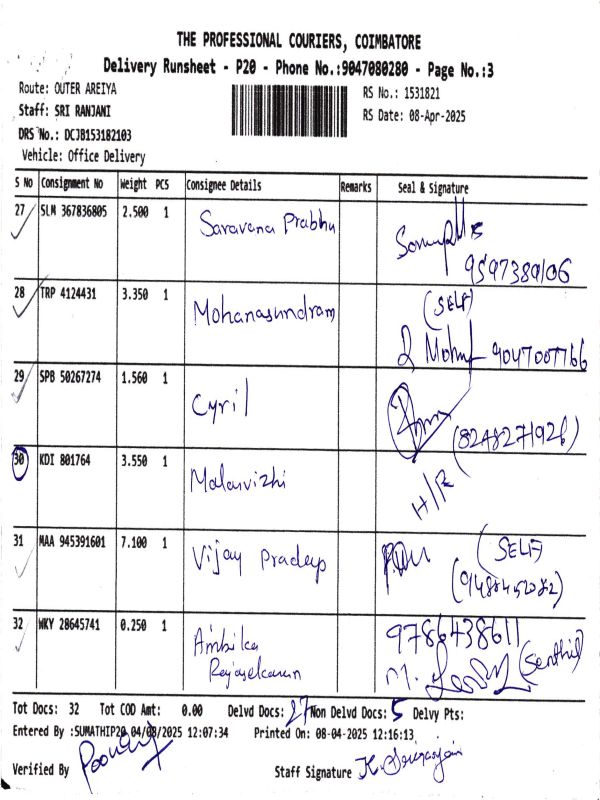 THE PROFESSIONAL COURIERS, COIMBATORE
Delivery Runsheet - P20 - Phone No.:9047080280 - Page No.:3
Route: OUTER AREIYA
RS No.: 1531821
Staff: SRI RANJANI
RS Date: 08-Apr-2025
DRS No.: DCJB153182103
Vehicle: Office Delivery
S No Consignment No Weight PCS Consignee Details Remarks Seal & Signature
27 SLM 367836805 2.500 1 Saravana Prabhu
9597389106
28 TRP 4124431 3.350 1 Mohanasundram (SELF)
9047007766
29 SPB 50267274 1.560 1 Cyril
(8248271926)
30 KDI 801764 3.550 1 Malarvizhi H/R
31 MAA 945391601 7.100 1 Vijay Pradeep (SELF)
32 WKY 28645741 0.250 1 Ambika Rajasekaran 9786438611
(Senthil)
Tot Docs: 32 Tot COD Amt: 0.00 Delvd Docs: 27 Non Delvd Docs: 5 Delvy Pts:
Entered By :SUMATHIP20 04/08/2025 12:07:34 Printed On: 08-04-2025 12:16:13
Verified By Staff Signature